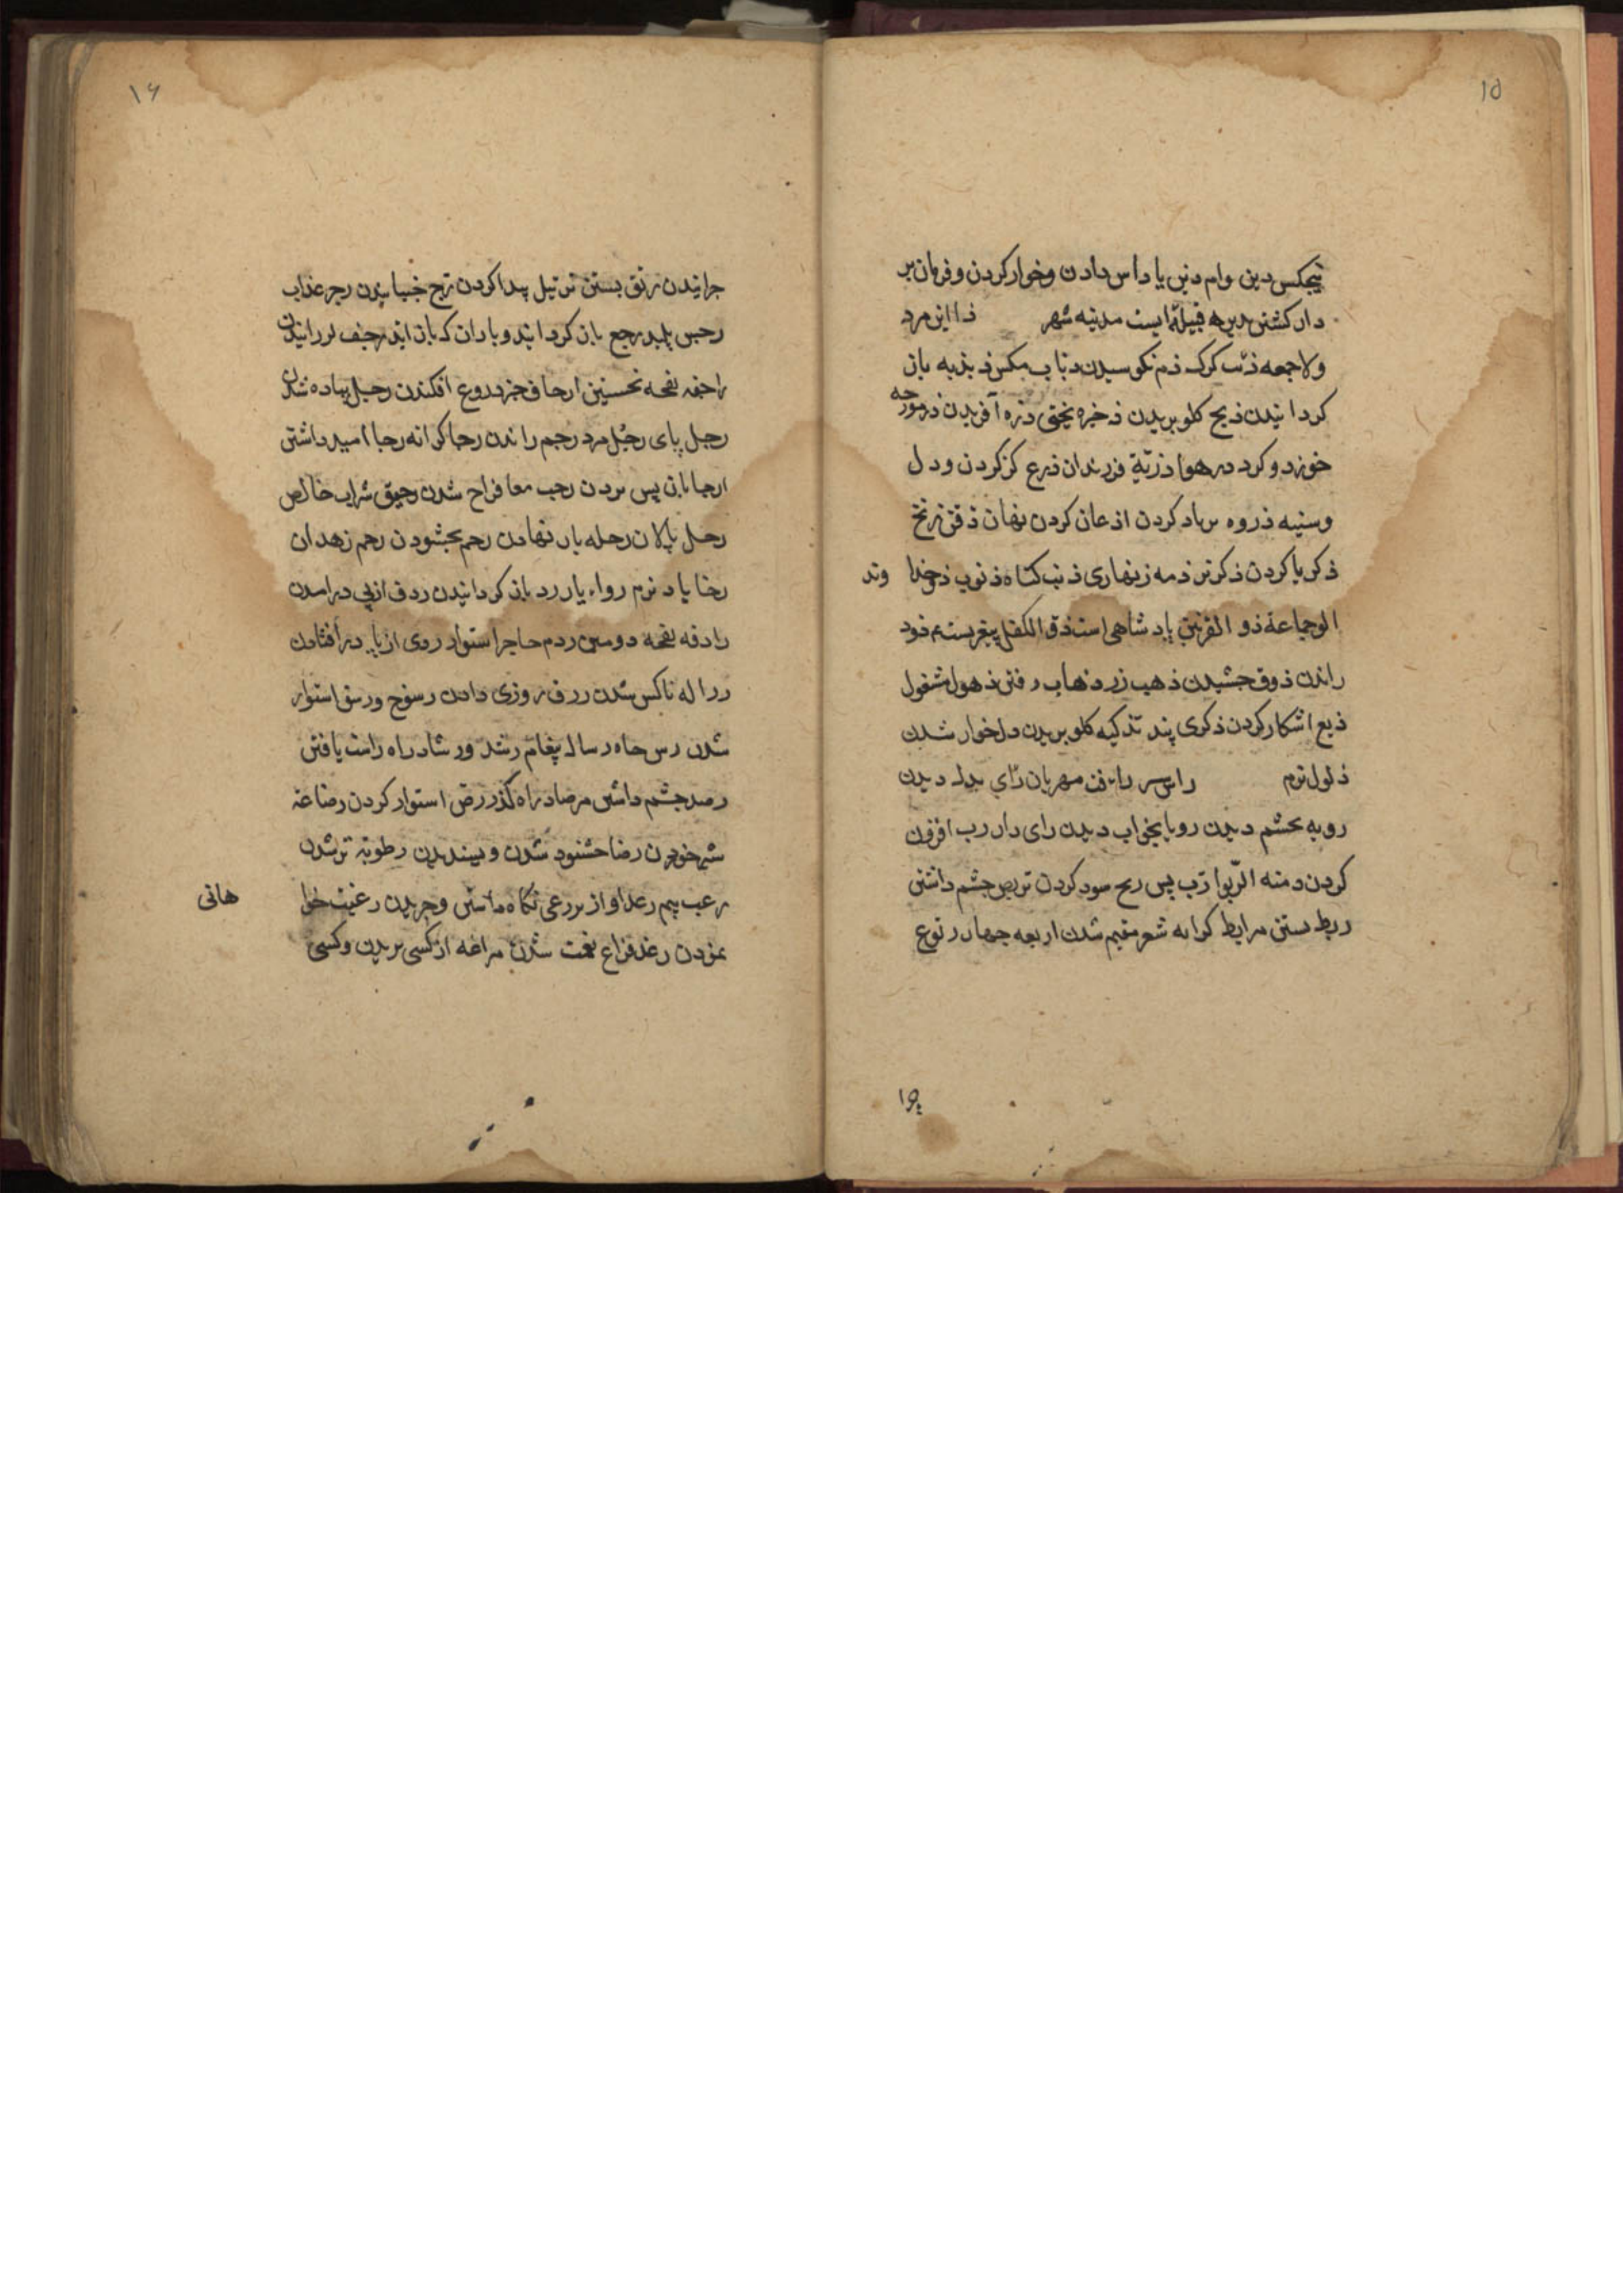 ۱۵
هیچکس دین وام دین پاداس دادن و خوار کردن و فرمان بر
دار کشتن مدین قبیلهٔ ایست مدنیه شهر ذا این مرد
ولاجمعه ذئب کرک ذم نکوسیدن ذباب مکس ذبذبه باز
کردانیدن ذبح کلو بریدن ذخیره یخنی ذره آفریدن ذر مورچه
خورد و کرد در هوا ذریّة فرزندان ذرع کز کردن و دل
وسینه ذروه برباد کردن اذعان کردن نهان ذقن زنخ
ذکر یا کردن ذکر نر ذمه زنهاری ذنب کناه ذنوب ذو خدا وند
الوجماعة ذو القرنین پادشاهی است ذو الکفل پیغمبریست ذود
راندن ذوق چشیدن ذهب زر ذهاب رفتن ذهول مشغول
ذیع اشکار کردن ذکری پند تذکیه کلو بریدن ذل خوار شدن
ذلول نرم راس سر رافت مهربان رای بدل دیدن
رویه بچشم دیدن رویا بخواب دیدن رای دار رب افزون
کردن ومنه الرّبوا رب پس ربح سود کردن تربص چشم داشتن
ربط بستن مرابط کرانه ثغر مقیم شدن اربعه چهار رتوع
۱۶
چرانیدن رتق بستن ترتیل پیدا کردن رج خبانیدن رجز عذاب
رجس پلید رجع باز کردانید و باران که باز اید رجف لرزانیدن
راجفه نفحه نخستین ارجاف خبر دروغ افکندن رجل پیاده شدن
رجل پای رجُل مرد رجم راندن رجا کرانه رجا امید داشتن
ارجا باز پس بردن رحب معا فراخ شدن رحیق شراب خالص
رحل پالان رحله بار نهادن رحم بخشودن رحم زهدان
رخا باد نرم رواء یار رد باز کردانیدن ردف از پی درامدن
رادفه نفحه دومین ردم حاجز استوار ردی از پا درافتادن
رذاله ناکس شدن رزق روزی دادن رسوخ ورسو استوار
شدن رس چاه رساله پیغام رشد ورشاد راه راست یافتن
رصد چشم داشتن مرصاد راه کذر رص استوار کردن رضاعة
شیر خوردن رضا خشنود شدن و پسندیدن رطوبة تر شدن
رعب بیم رعد اواز بر رعی نکاه داشتن و چریدن رغبت خوا هانی
نمودن رغد فراغ نعمت شدن مراغه از کسی بریدن وکسی